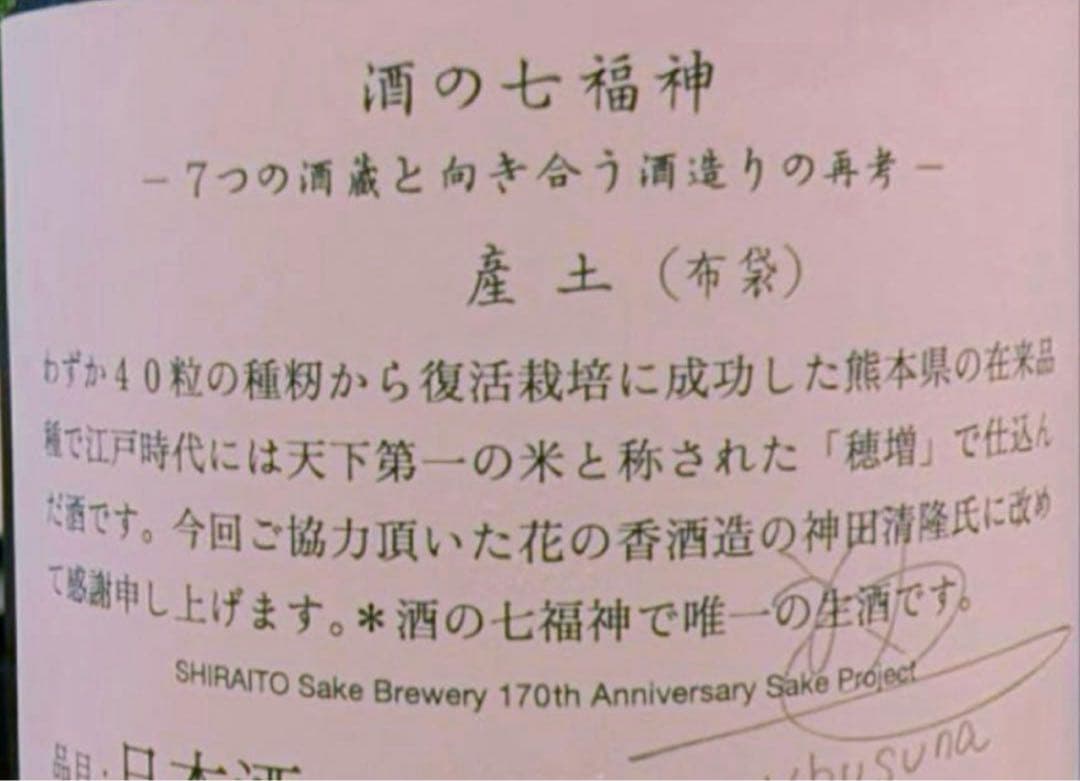 酒の七福神
－7つの酒蔵と向き合う酒造りの再考－
産土（布袋）
わずか４０粒の種籾から復活栽培に成功した熊本県の在来品
種で江戸時代には天下第一の米と称された「穂増」で仕込ん
だ酒です。今回ご協力頂いた花の香酒造の神田清隆氏に改め
て感謝申し上げます。＊酒の七福神で唯一の生酒です。
SHIRAITO Sake Brewery 170th Anniversary Sake Project
品目：日本酒